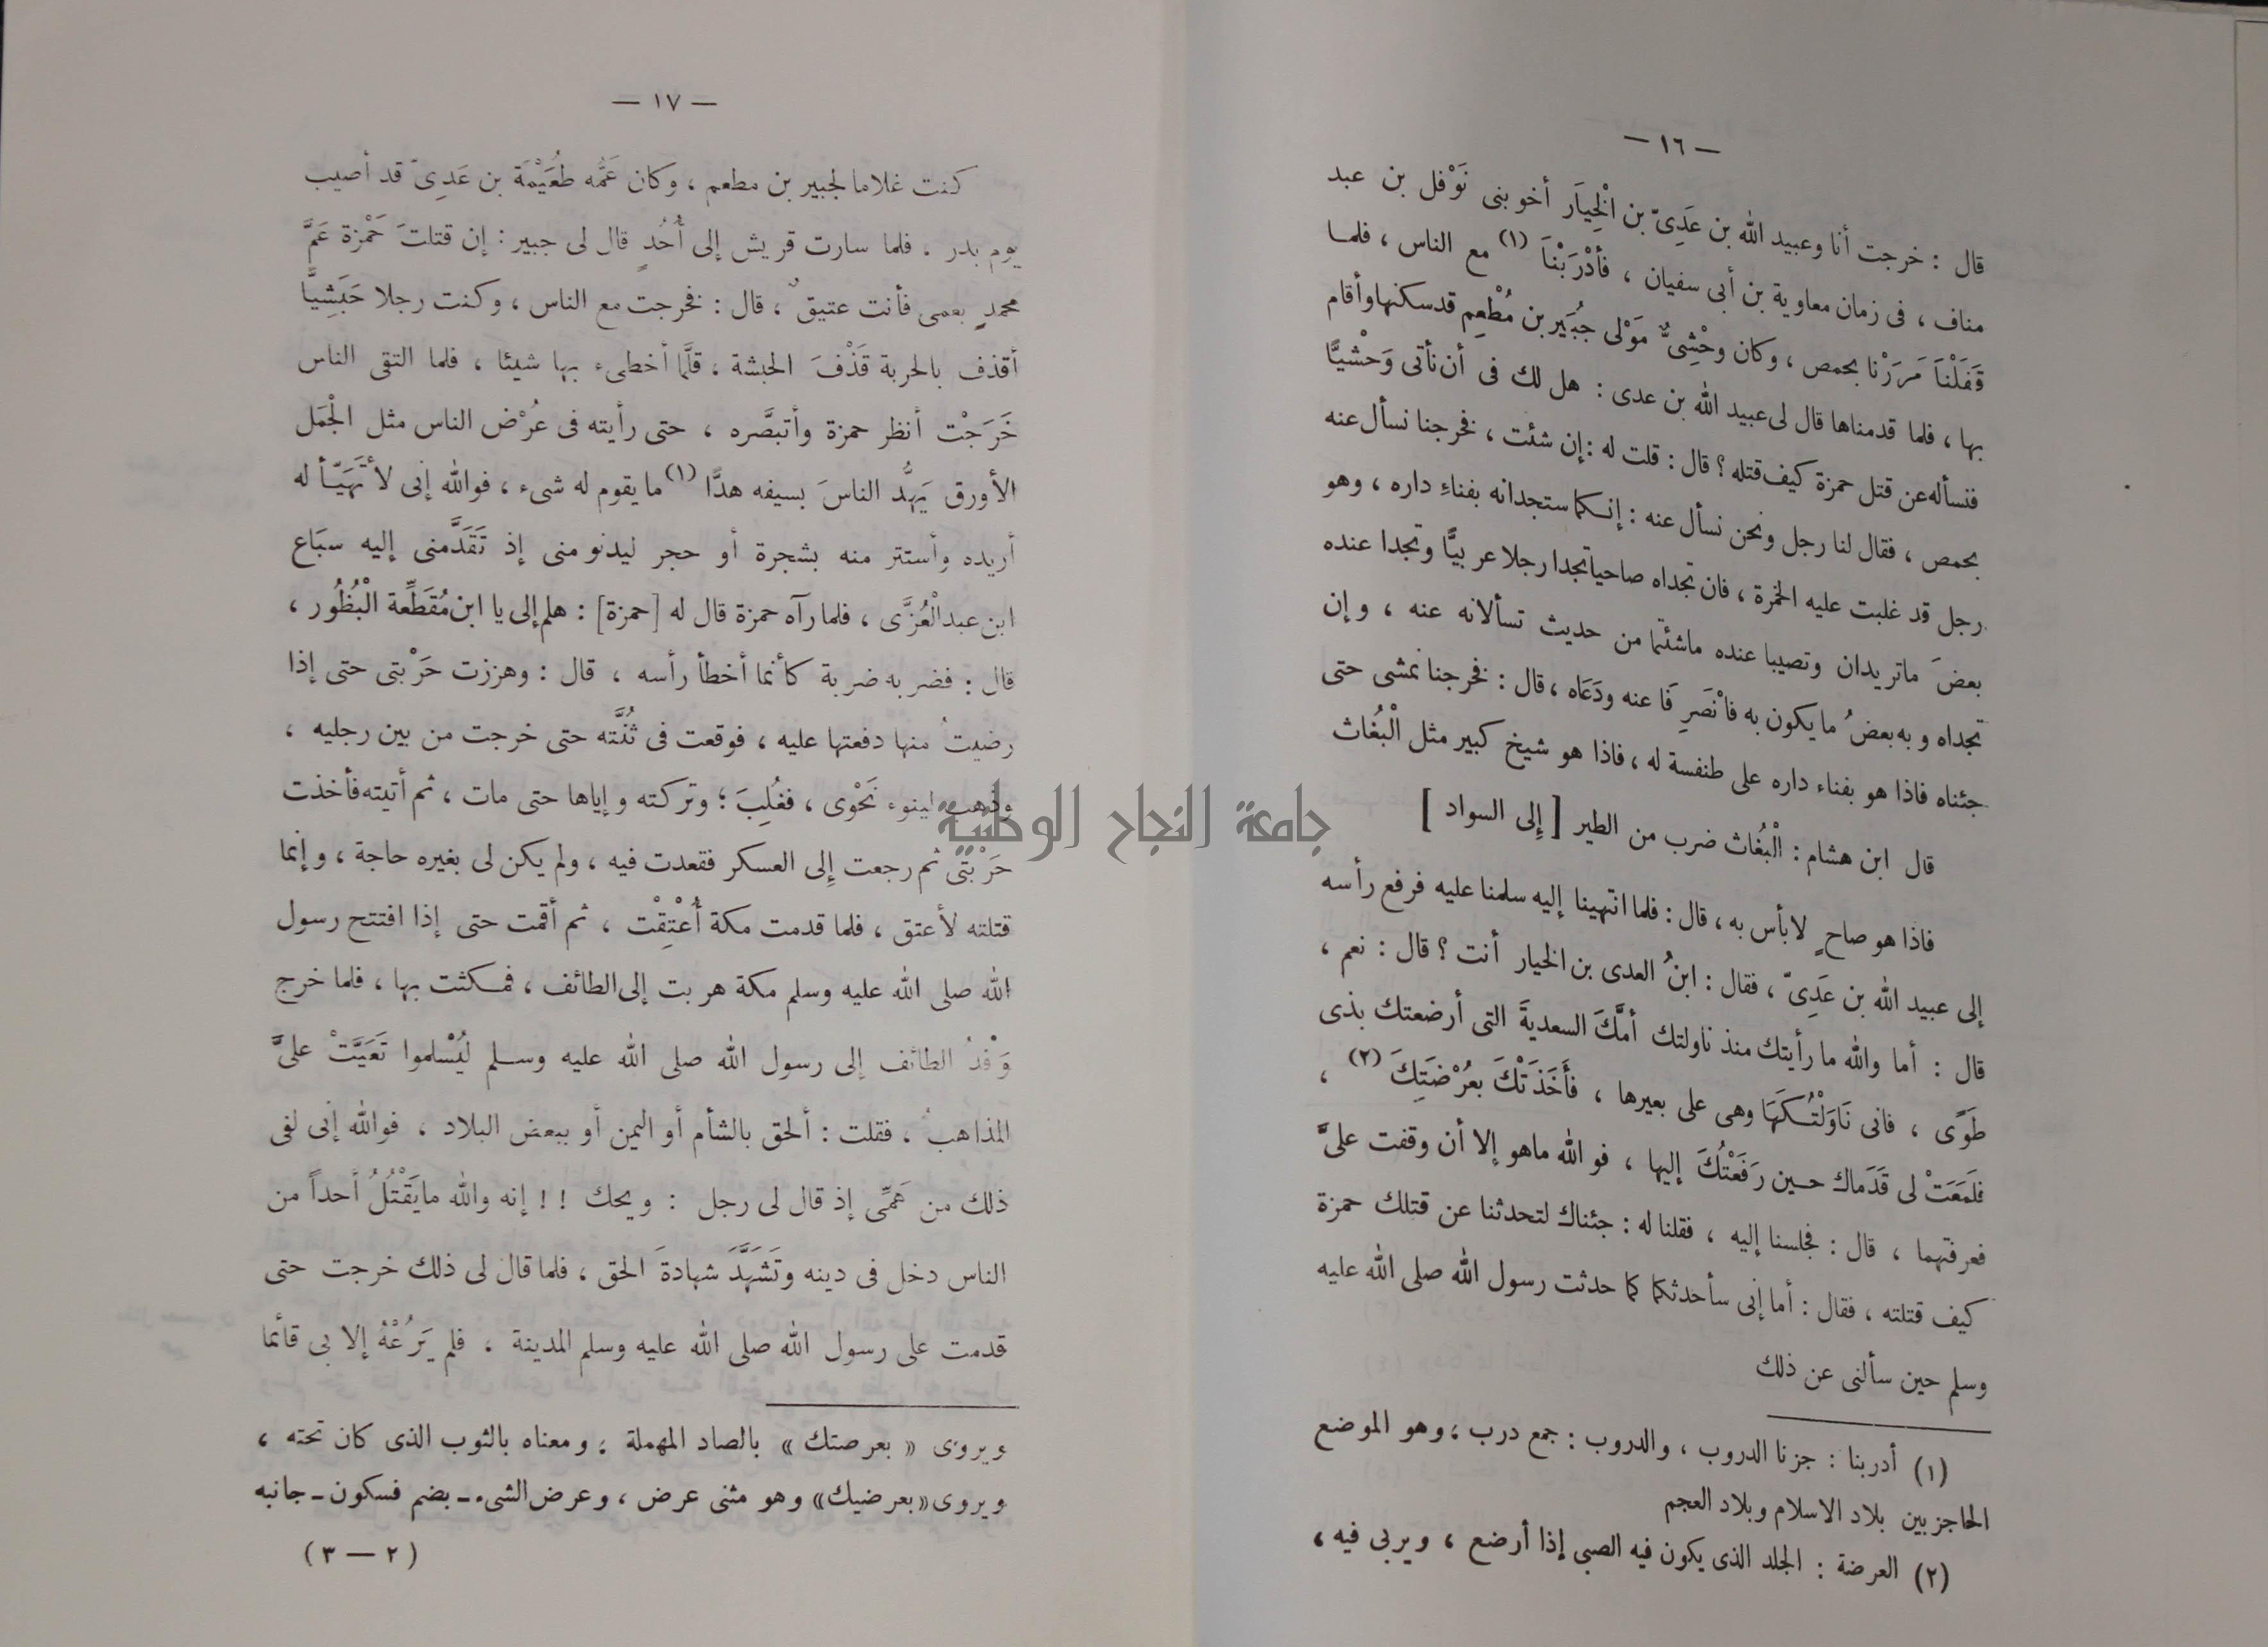 — ١٦ —
قال : خرجت أنا وعبيد الله بن عَدِىّ بن الْخِيَار أخو بنى نَوْفل بن عبد
مناف ، فى زمان معاوية بن أبى سفيان ، فأَدْرَبْنَا (١) مع الناس ، فلما
قَفَلْنَا مَرَرْنا بحمص ، وكان وحْشِىٌّ مَوْلى جُبَير بن مُطْعِم قد سكنها وأقام
بها ، فلما قدمناها قال لى عبيد الله بن عدى : هل لك فى أن نأتى وَحْشيًّا
فنسأله عن قتل حمزة كيف قتله ؟ قال : قلت له : إن شئت ، فخرجنا نسأل عنه
بحمص ، فقال لنا رجل ونحن نسأل عنه : إنكما ستجدانه بفناءِ داره ، وهو
رجل قد غلبت عليه الخمرة ، فان تجداه صاحيا تجدا رجلا عربيًّا وتجدا عنده
بعضَ ماتريدان وتصيبا عنده ماشئتما من حديث تسألانه عنه ، وإن
تجداه وبه بعضُ ما يكون به فانْصَرِفَا عنه ودَعَاه ، قال : فخرجنا نمشى حتى
جئناه فاذا هو بفناء داره على طنفسة له ، فاذا هو شيخ كبير مثل الْبُغاث
قال ابن هشام : الْبُغاث ضرب من الطير [ إلى السواد ]
فاذا هو صاحٍ لابأس به ، قال : فلما انتهينا إليه سلمنا عليه فرفع رأسه
إلى عبيد الله بن عَدِىّ ، فقال : ابنُ العدى بن الخيار أنت ؟ قال : نعم ،
قال : أما والله ما رأيتك منذ ناولتك أمَّكَ السعديةَ التى أرضعتك بذى
طَوًى ، فانى نَاوَلْتُكَهَا وهى على بعيرها ، فأَخَذَتْكَ بعُرْضَتِكَ (٢) ،
فلمَعَتْ لى قَدَماك حين رَفَعْتُكَ إليها ، فو الله ماهو إلا أن وقفت علىَّ
فعرفتهما ، قال : فجلسنا إليه ، فقلنا له : جئناك لتحدثنا عن قتلك حمزة
كيف قتلته ، فقال : أما إنى سأحدثكما كما حدثت رسول الله صلى الله عليه
وسلم حين سألنى عن ذلك
(١) أدربنا : جزنا الدروب ، والدروب : جمع درب ؛ وهو الموضع
الحاجز بين بلاد الاسلام وبلاد العجم
(٢) العرضة : الجلد الذى يكون فيه الصبى إذا أرضع ، ويربى فيه ،
— ١٧ —
كنت غلاما لجبير بن مطعم ، وكان عَمُّه طُعَيْمَة بن عَدِىّ قد أصيب
يوم بدر . فلما سارت قريش إلى أُحُدٍ قال لى جبير : إن قتلتَ حَمْزة عَمَّ
محمدٍ بعمى فأنت عتيقٌ ، قال : فخرجت مع الناس ، وكنت رجلا حَبَشِيًّا
أقذف بالحربة قَذْفَ الحبشة ، قلَّما أخطىء بها شيئا ، فلما التقى الناس
خَرَجْت أنظر حمزة وأتبصَّره ، حتى رأيته فى عُرْض الناس مثل الْجَمَل
الأورق يَهُدُّ الناسَ بسيفه هدًّا (١) ما يقوم له شىء ، فوالله إنى لأتَهَيَّأ له
أريده وأستتر منه بشجرة أو حجر ليدنو منى إذ تَقَدَّمنى إليه سبَاع
ابن عبد الْعُزَّى ، فلما رآه حمزة قال له [حمزة] : هلم إلى يا ابن مُقَطِّعة الْبُظُور ،
قال : فضربه ضربة كأنما أخطأ رأسه ، قال : وهززت حَرْبتى حتى إذا
رضيتُ منها دفعتها عليه ، فوقعت فى ثُنَّته حتى خرجت من بين رجليه ،
وذهب لينوء نَحْوى ، فغُلِبَ ؛ وتركته وإياها حتى مات ، ثم أتيته فأخذت
حَرْبَتى ثم رجعت إلى العسكر فقعدت فيه ، ولم يكن لى بغيره حاجة ، وإنما
قتلته لأعتق ، فلما قدمت مكة أُعْتِقْت ، ثم أقمت حتى إذا افتتح رسول
الله صلى الله عليه وسلم مكة هربت إلى الطائف ، فمكثت بها ، فلما خرج
وَفْدُ الطائف إلى رسول الله صلى الله عليه وسلم ليُسْلموا تَعَيَّتْ علىَّ
المذاهبُ ، فقلت : ألحق بالشأم أو اليمن أو ببعض البلاد ، فوالله إنى لفى
ذلك من هَمِّى إذ قال لى رجل : ويحك ! ! إنه والله مايَقْتُلُ أحداً من
الناس دخل فى دينه وتَشَهَّدَ شهادةَ الحق ، فلما قال لى ذلك خرجت حتى
قدمت على رسول الله صلى الله عليه وسلم المدينة ، فلم يَرُعْهُ إلا بى قائما
ويروى « بعرصتك » بالصاد المهملة ؛ ومعناه بالثوب الذى كان تحته ،
ويروى « بعرضيك » وهو مثنى عرض ، وعرض الشىء ـ بضم فسكون ـ جانبه
( ٢ — ٣ )
جامعة النجاح الوطنية